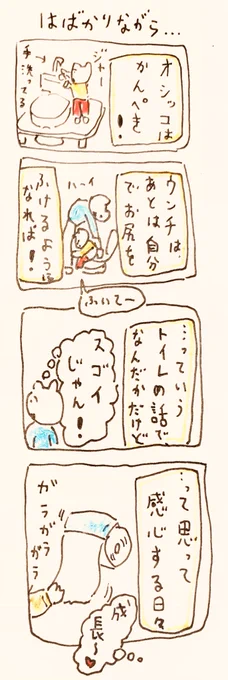 はばかりながら…
オシッコは
かんぺき
！
ジャー
手洗ってる
ウンチは、
あとは自分
でお尻を
ふけるように
なれば！
ハーイ
ふいてー
…っていう
トイレの話で
なんだかだけど
スゴイ
じゃん！
…って思って
感心する日々
ガラガラ
ガラ
成
長～♥